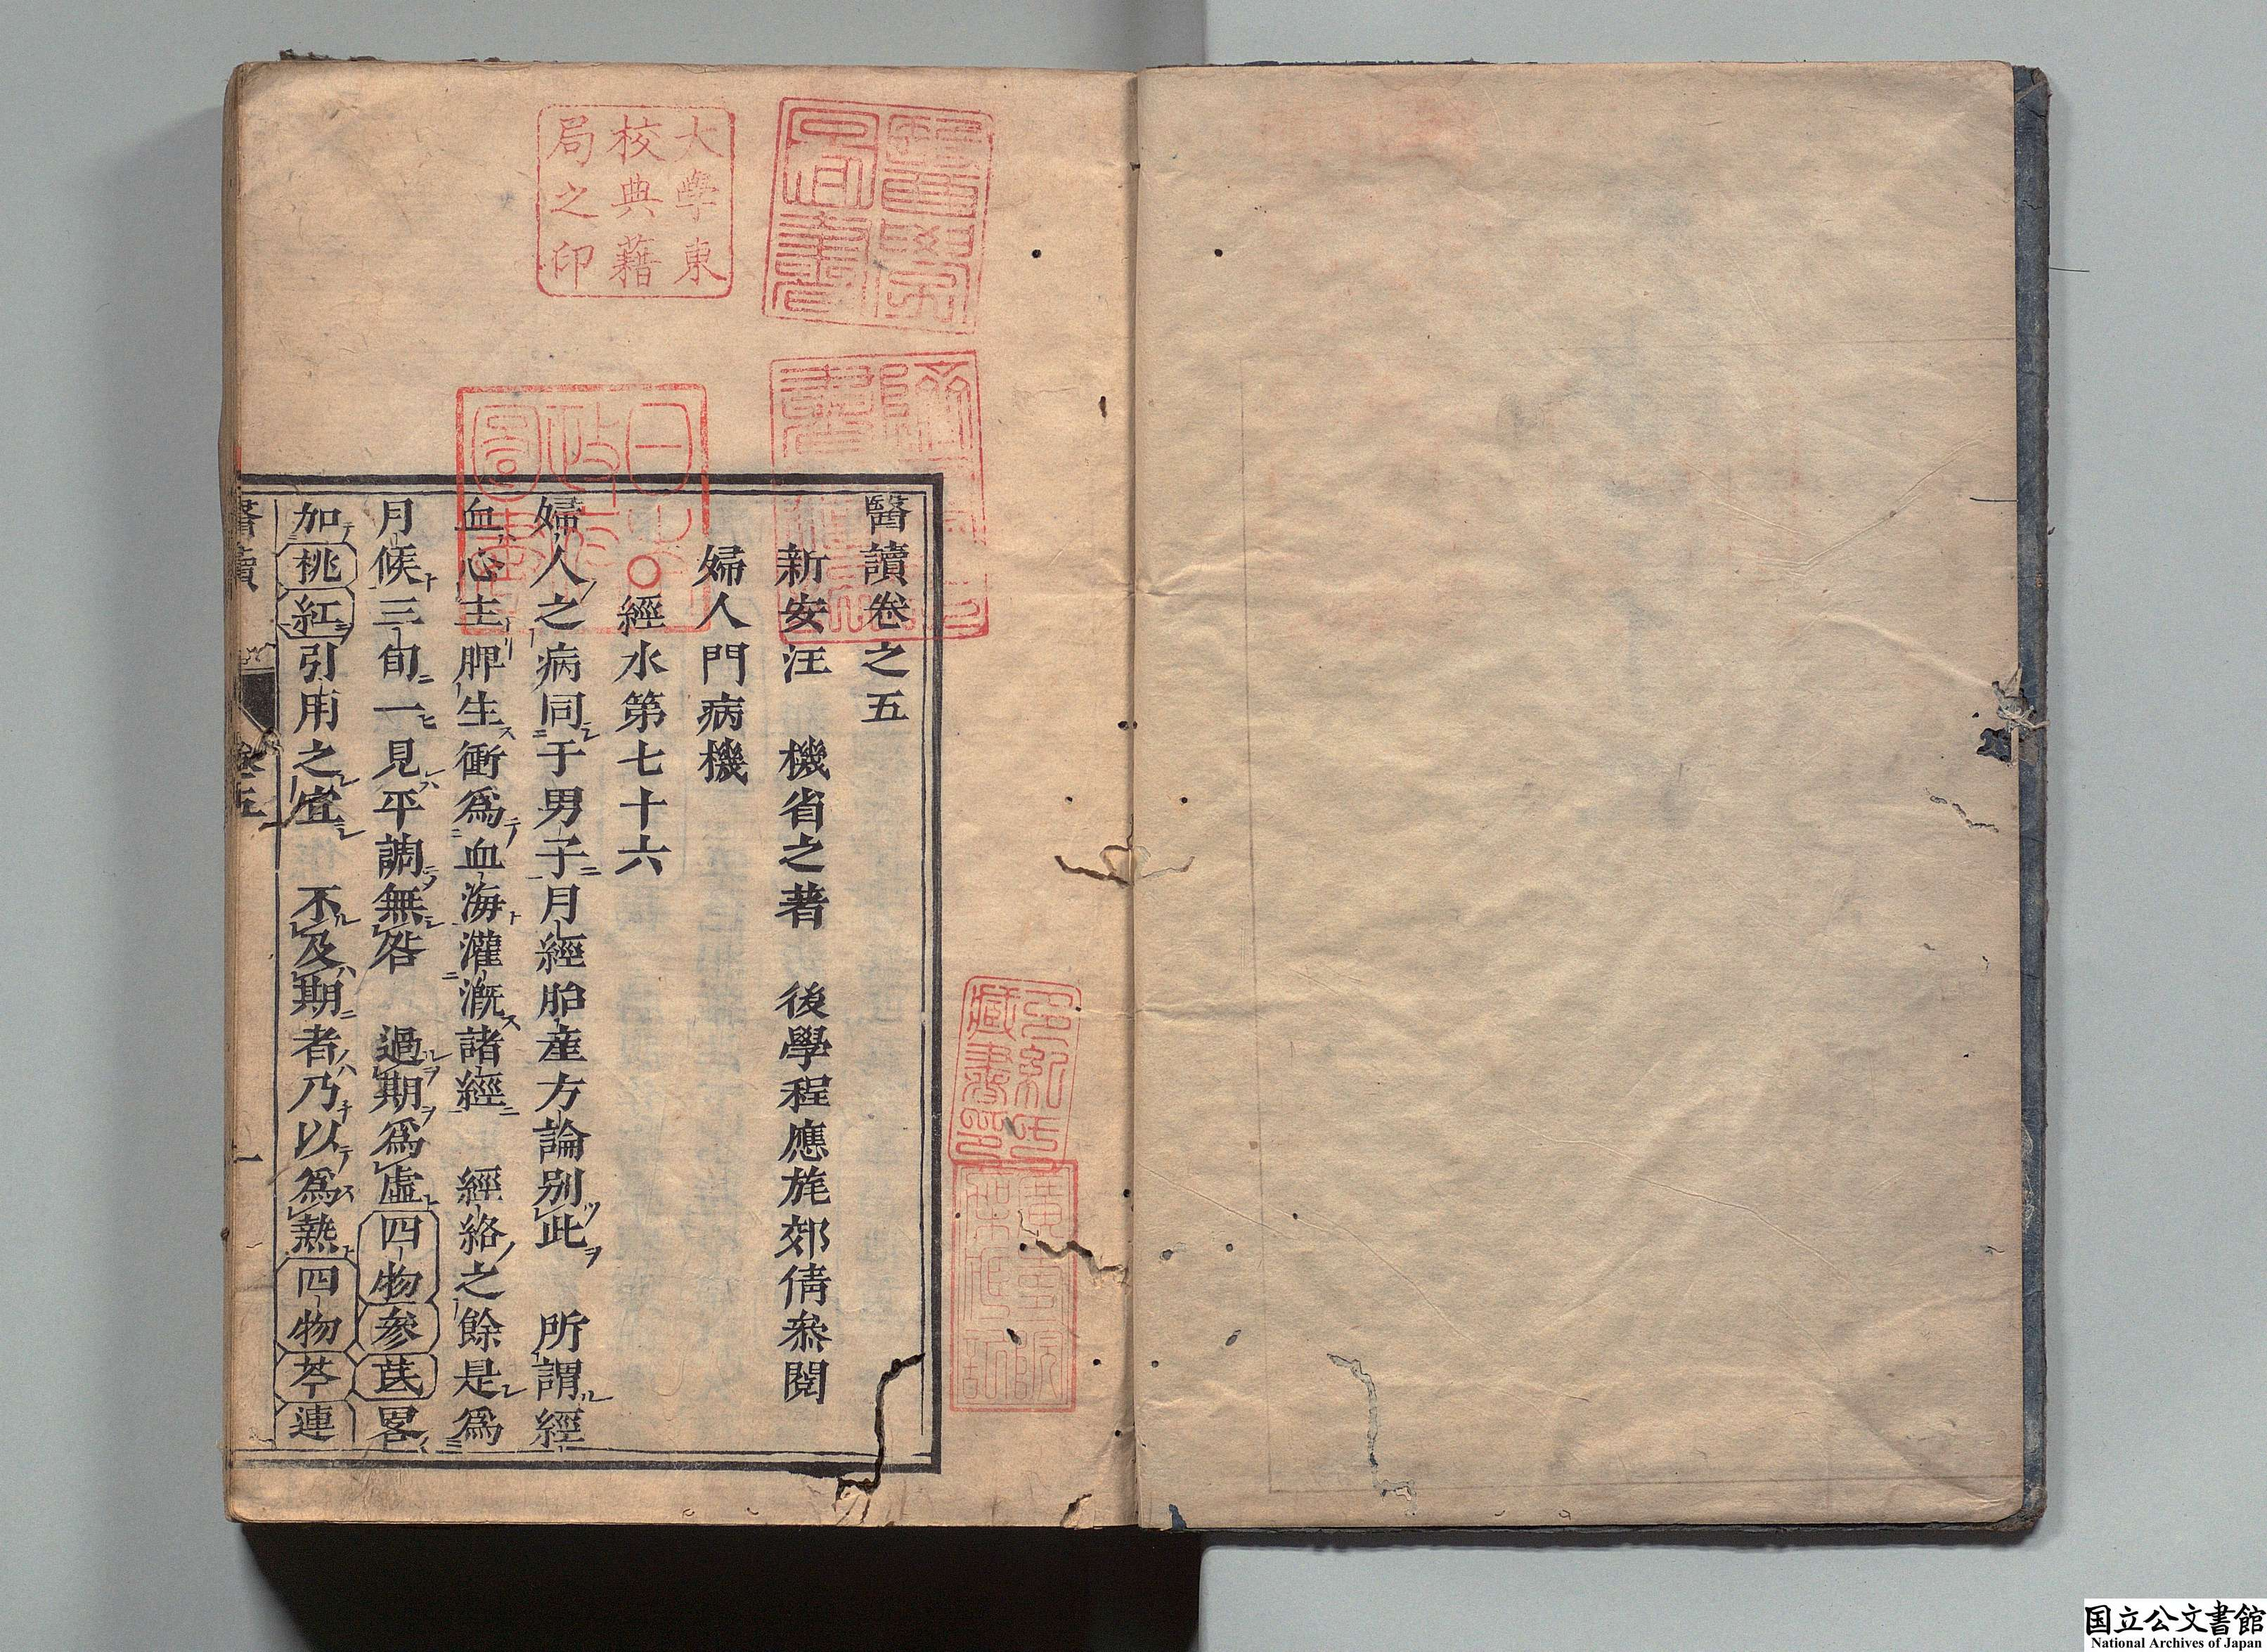 醫讀卷之五
新安汪　機省之著　後學程應旄郊倩叅閱
婦人門病機
○經水第七十六
婦人之病同于男子月經胎產方論別此　所謂經
血心主脾生衝爲血海灌漑諸經　經絡之餘是爲
月候三旬一見平調無咎　過期爲虛四物參芪畧
加桃紅引用之宜　不及期者乃以爲熱四物芩連
醫讀　卷五　一
大學東
校典藉
局之印
醫學
圖書
日本
政府
圖書
藏書印
国立公文書館
National Archives of Japan